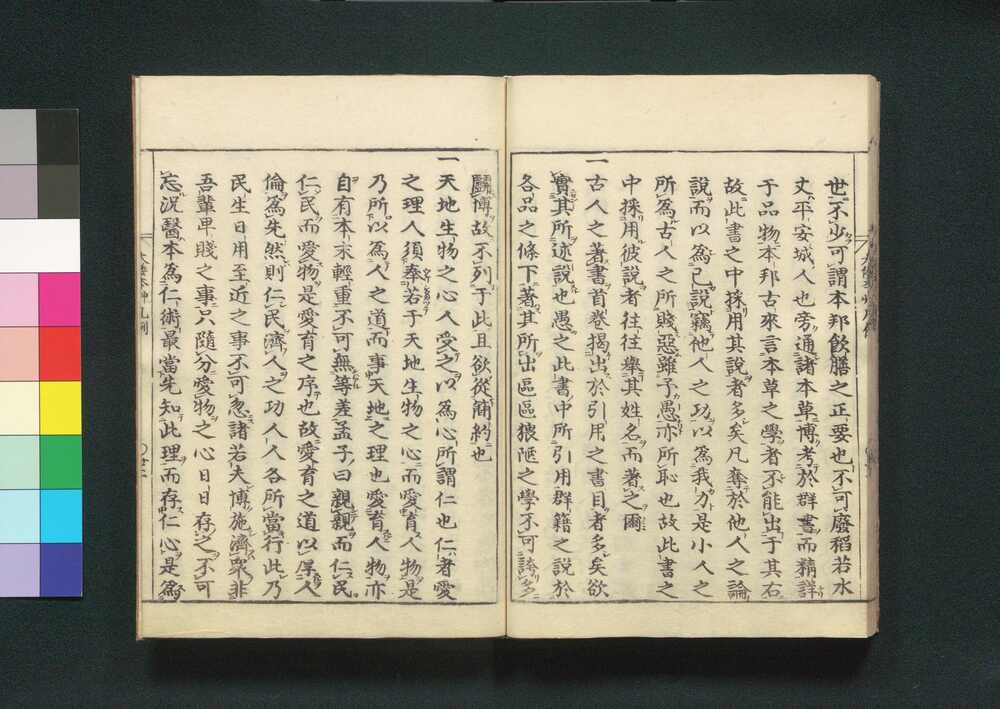 世不少可謂本邦飲膳之正要也不可廢稻若水
丈平安城人也旁通諸本草博考於群書而精詳
于品物本邦古來言本草之學者不能出于其右
故此書之中採用其說者多矣凡奪於他人之論
說而以為己說竊他人之功以為我力是小人之
所為古人之所賤惡雖予愚亦所恥也故此書之
中採用彼說者往往舉其姓名而著之爾
一
古人之著書首卷揭出於引用之書目者多矣欲
實其所述說也愚之此書中所引用群籍之說於
各品之條下著其所出區區猥陋之學不可誇多
鬪博故不列于此且欲從簡約也
一
天地生物之心人受之以為心所謂仁也仁者愛
之理人須奉若于天地生物之心而愛育人物是
乃所以為人之道而事天地之理也愛育人物亦
自有本末輕重不可無等差孟子曰親親而仁民
仁民而愛物是愛育之序也故愛育之道以厚人
倫為先然則仁民濟人之功人人各所當行此乃
民生日用至近之事不可忽諸若夫博施濟衆非
吾輩卑賤之事只隨分愛物之心日日存之不可
忘況醫本為仁術最當先知此理而存仁心是為